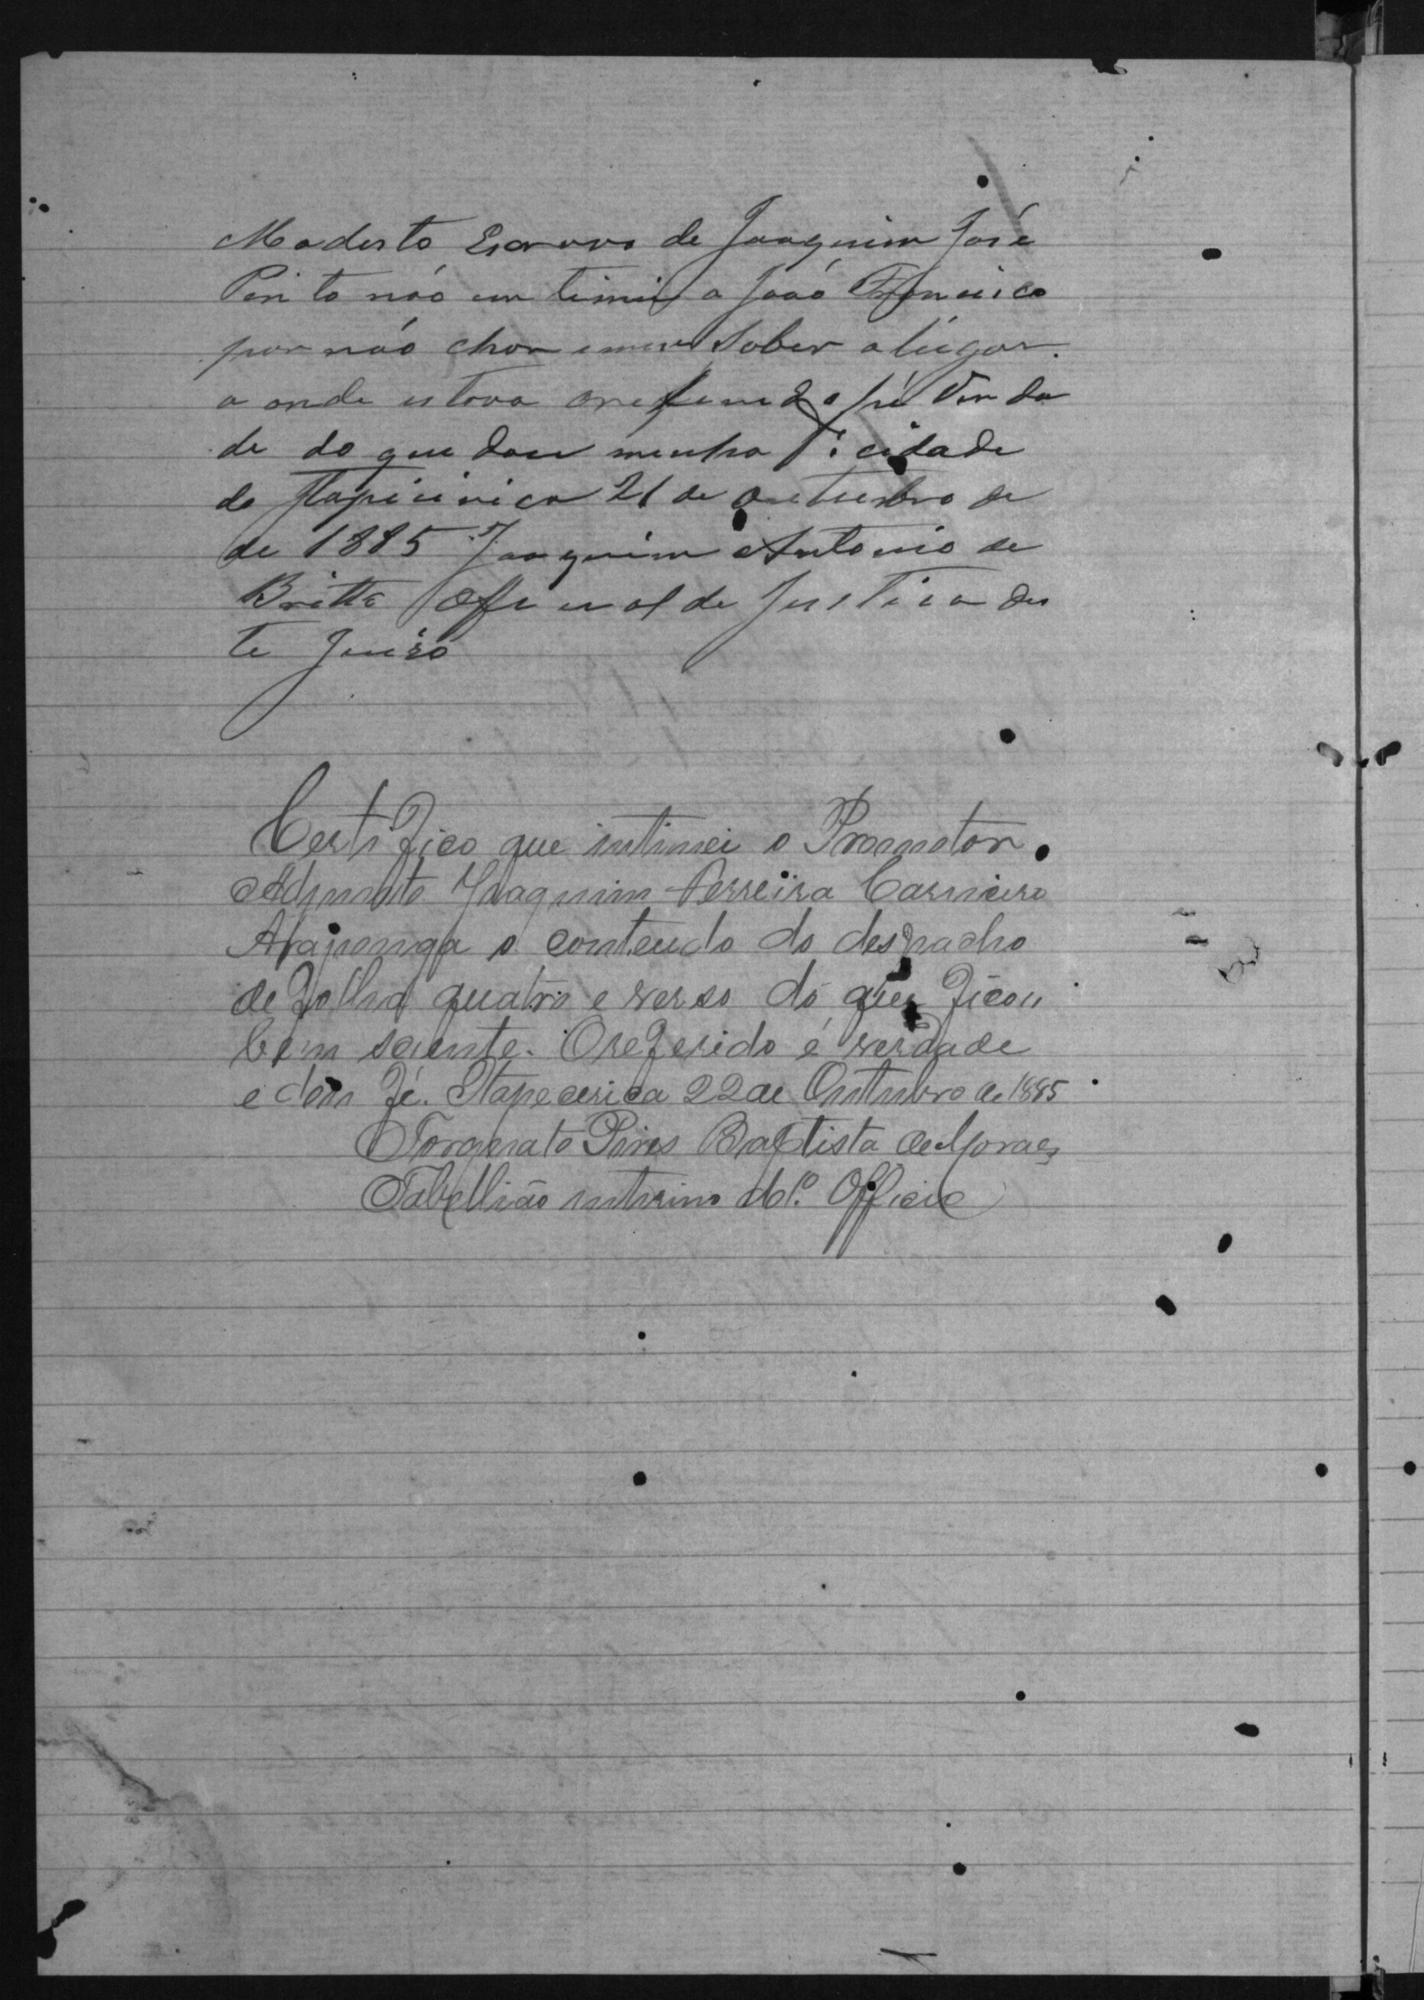 Modesto Escravo de Joaquim José
Pinto não intimei a João Francisco
por não
a onde estava o referido he verda
de do que dou minha Fé cidade
de Itapicirica 21 de outubro de
de 1885 Joaquim Antonio de
Britto Oficial de Justica des
te Juiso
Certifico que intimei o Promotor
Adjuncto Joaquim Ferreira Carneiro
Araponga o conteudo do despacho
de folha quatro e verso do que ficou
bem sciente. O referido é verdade
e dou fé. Itapecerica 22 de Outubro de 1885
Torquato Pires Baptista de Moraes
Tabellião interino do 1º. Officio